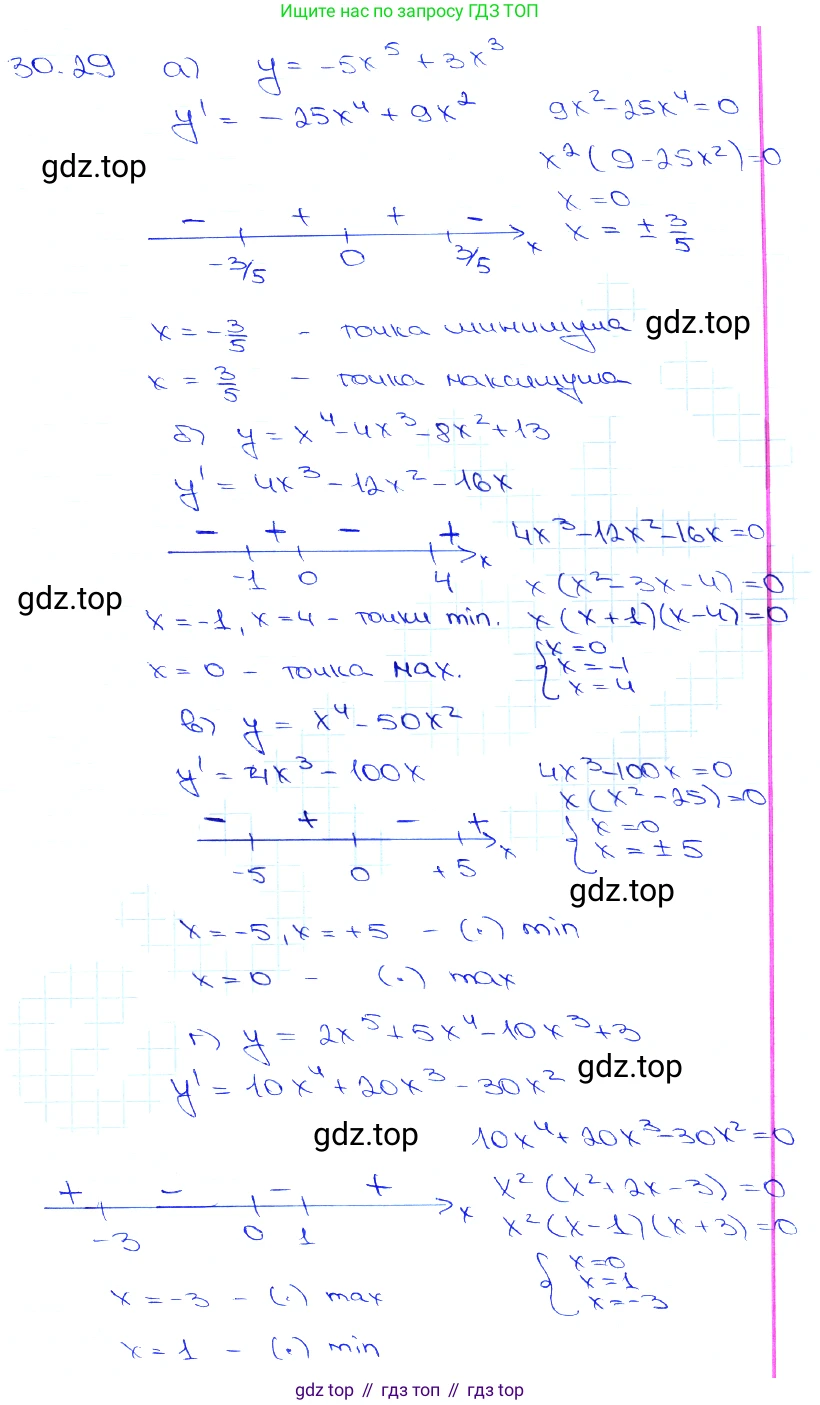 Ищите нас по запросу ГДЗ ТОП
30.29 а) y = -5x⁵ + 3x³
y' = -25x⁴ + 9x²
9x² - 25x⁴ = 0
gdz.top
x²(9 - 25x²) = 0
x = 0
x = ± 3/5
- + + -
-3/5 0 3/5 x
x = -3/5 - точка минимума
gdz.top
x = 3/5 - точка максимума
б) y = x⁴ - 4x³ - 8x² + 13
y' = 4x³ - 12x² - 16x
- + - +
-1 0 4 x
4x³ - 12x² - 16x = 0
x(x² - 3x - 4) = 0
gdz.top
x = -1, x = 4 - точки min.
x(x + 1)(x - 4) = 0
{ x = 0
x = -1
x = 4
x = 0 - точка мах.
в) y = x⁴ - 50x²
y' = 4x³ - 100x
4x³ - 100x = 0
x(x² - 25) = 0
{ x = 0
x = ± 5
- + - +
-5 0 +5 x
gdz.top
x = -5, x = +5 - (.) min
x = 0 - (.) max
г) y = 2x⁵ + 5x⁴ - 10x³ + 3
y' = 10x⁴ + 20x³ - 30x²
gdz.top
gdz.top
10x⁴ + 20x³ - 30x² = 0
x²(x² + 2x - 3) = 0
x²(x - 1)(x + 3) = 0
{ x = 0
x = 1
x = -3
+ - - +
-3 0 1 x
x = -3 - (.) max
x = 1 - (.) min
gdz.top // гдз топ // gdz.top